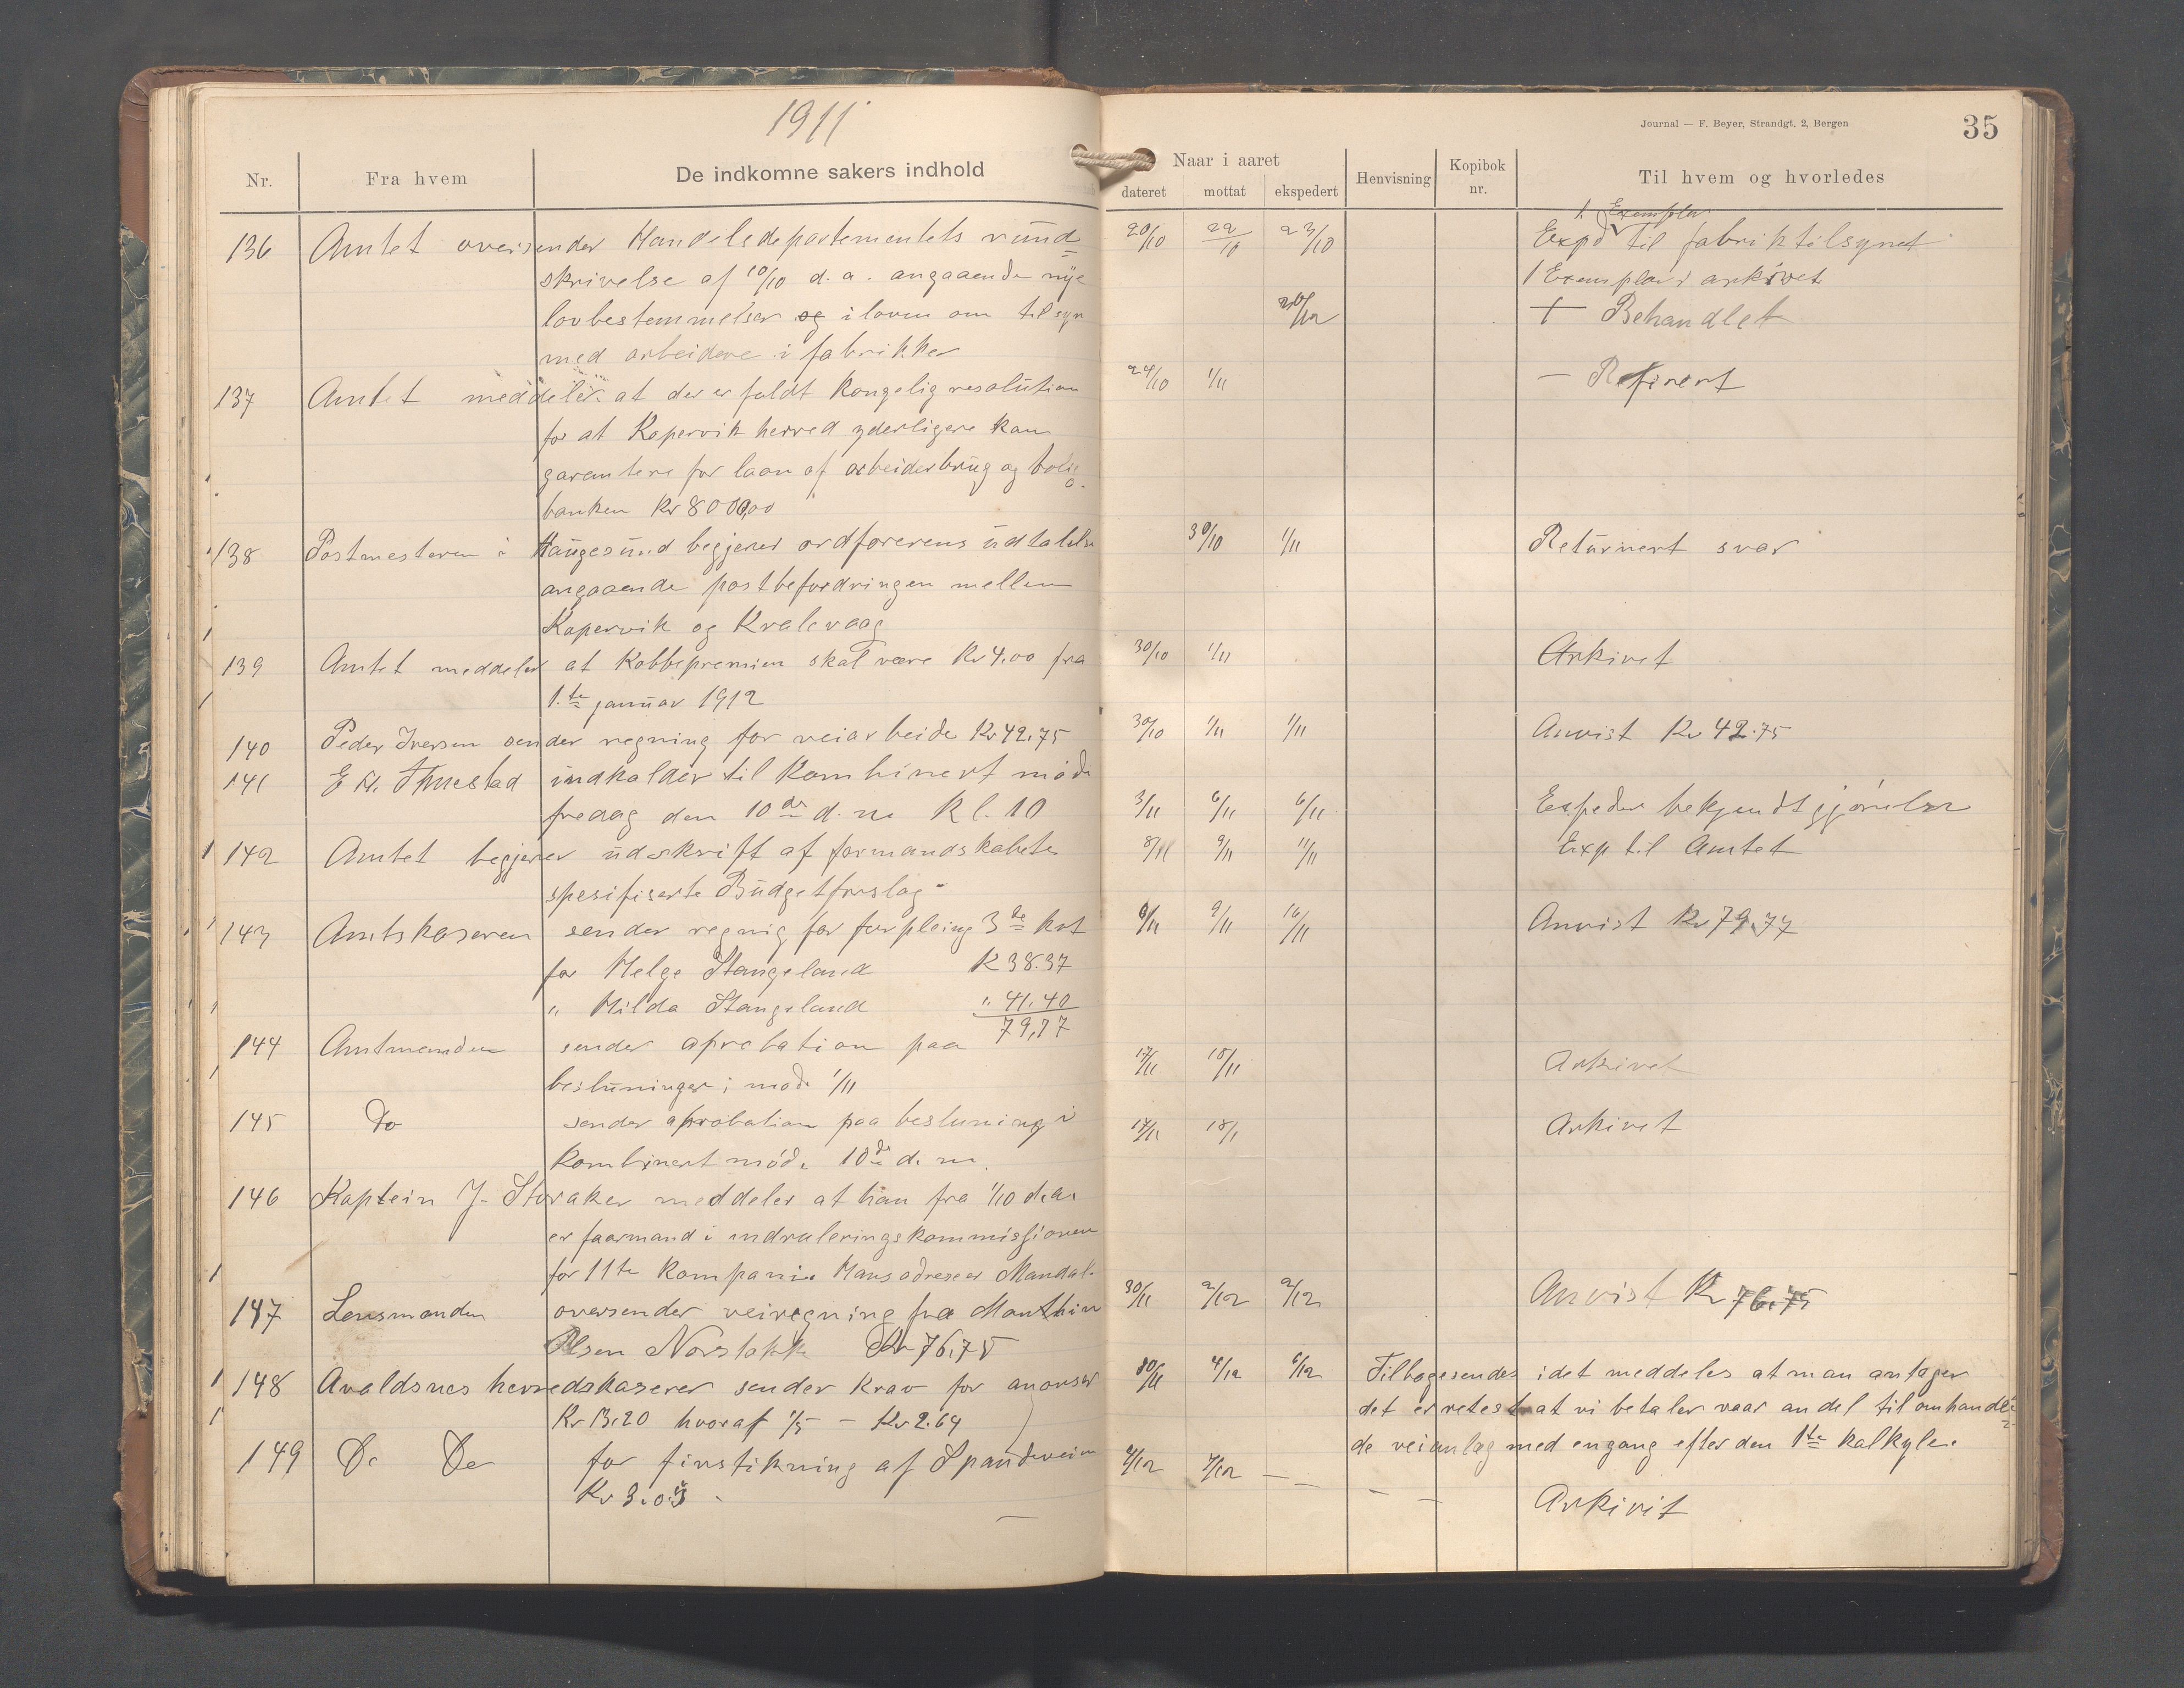 1911
Journal — F. Beyer, Strandgt. 2, Bergen
35
Nr.
Fra hvem
De indkomne sakers indhold
Naar i aaret
dateret
mottat
ekspedert
Henvisning
Kopibok nr.
Til hvem og hvorledes
136 Amtet oversender Handelsdepartementets rund= 20/10 22/10 23/10 Expd 1 Exemplar til fabriktilsynet
skrivelse af 10/10 d.a. angaaende nye 1 Exemplar i arkivet
lovbestemmelser og i loven om tilsyn 20/12 + Behandlet
med arbeidere i fabrikker
137 Amtet meddeler at der er faldt Kongelig resolution 24/10 1/11 — Referert
for at Kopervik herred yderligere kan
garantere for laan af arbeiderbrug og bolig
banken Kr 8000,00
138 Postmesteren i Haugesund begjerer ordførerens udtalelse 30/10 1/11 Returnert svar
angaaende postbefordringen mellem
Kopervik og Kvalevaag
139 Amtet meddeler at Kobbepremien skal være Kr 4.00 fra 30/10 1/11 Arkivet
1.te januar 1912
140 Peder Iversen sender regning for veiarbeide Kr 42.75 30/10 1/11 1/11 Anvist Kr 42.75
141 indkalder til kombinert møde
fredag den 10de d.m. Kl. 10 3/11 6/11 6/11 bekjendtgjørelse
142 Amtet begjerer udskrift af formandskabets 8/11 9/11 11/11 Exp til Amtet
spesifiserte Budgetforslag
143 Amtskaseren sender regnig for forpleing 3de kvt 6/11 9/11 16/11 Anvist Kr 79.77
for Helge Stangeland K 38.37
" Hilda Stangeland " 41.40
79,77
144 Amtmanden sender aprobation paa 17/11 18/11 Arkivet
besluninger i møde 1/11
145 Do sender aprobation paa besluning i 17/11 18/1 Arkivet
Kombinert møde 10de d.m.
146 Kaptein J. Storaker meddeler at han fra 1/10 d.a.
er faarmand i indruleringskommissionen
for 11te Kompani. Hans adresse er Mandal.
147 Lensmanden oversender veiregning fra Manthin 30/11 2/12 2/12 Anvist Kr 76.75
Olsen Norstokke Kr 76,75
148 Avaldsnes herredskaserer sender Krav for anonser 30/11 4/12 6/12 Tilbagesendes idet meddeles at man antager
Kr 13.20 hvoraf 1/5 — Kr 2.64 det er retest at vi betaler vaar andel til omhandle=
de veianlæg med engang efter den 1te kalkyle.
149 Do Do for finstikning af Spandeveien 2/12 7/12 —
Kr 3.03 — — — Arkivit